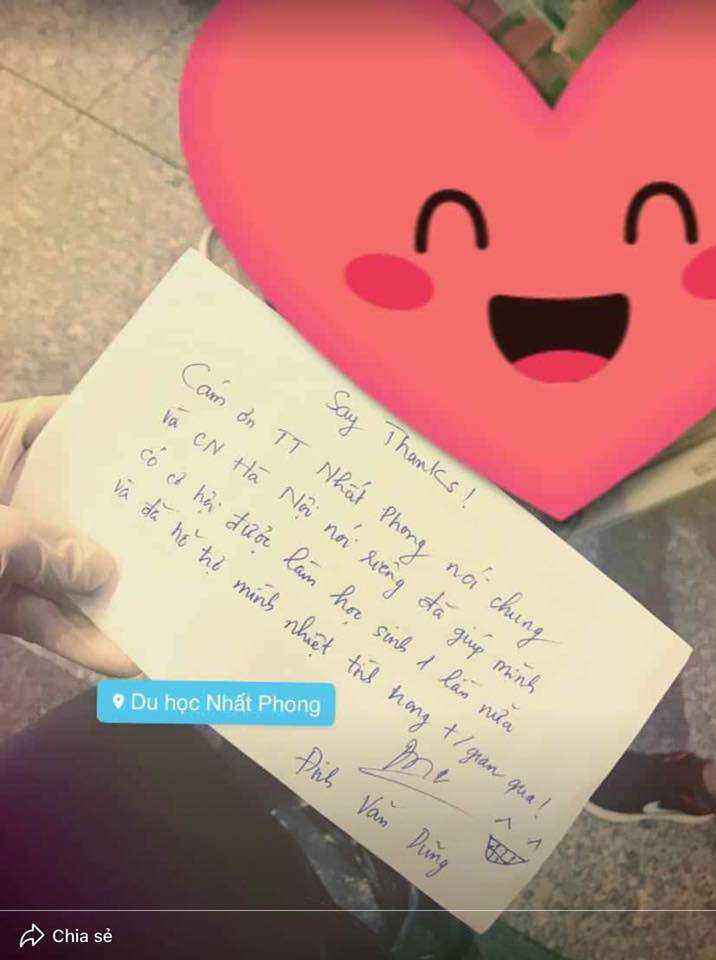 Say Thanks!
Cám ơn TT Nhất Phong nói chung
và CN Hà Nội nói riêng đã giúp mình
có cơ hội được làm học sinh 1 lần nữa
và đã hỗ trợ mình nhiệt tình trong t/gian qua!
Đinh Văn Dũng
Du học Nhất Phong
Chia sẻ